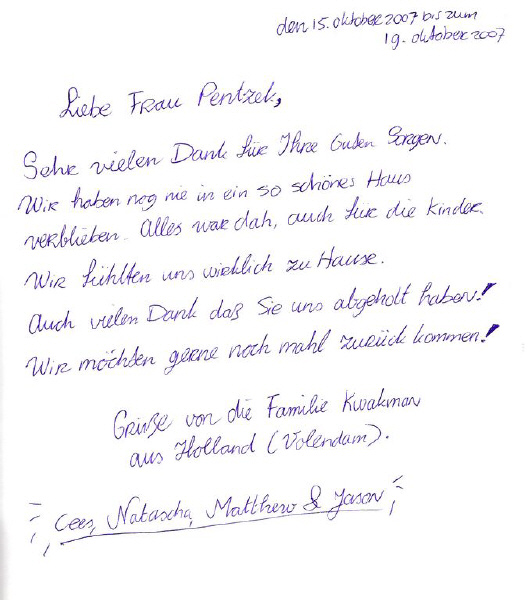 den 15. oktober 2007 bis zum
19. oktober 2007
Liebe Frau Pentzek,
Sehr vielen Dank für Ihre Guten Sorgen.
Wir haben nog nie in ein so schönes Haus
verblieben. Alles war dah, auch fur die Kinder.
Wir fühlten uns wirklich zu Hause.
Auch vielen Dank daß Sie uns abgeholt haben!
Wir möchten gerne noch mahl zurück kommen!
Grüße von die Familie Kwakman
aus Holland (Volendam).
Cees, Natascha, Matthew & Jason